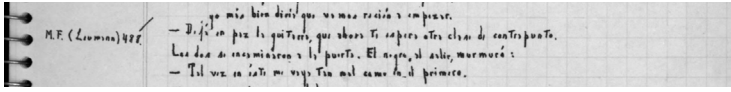 yo más bien diría que vamos recién a empezar.
M.F. (Leumann) 488.
— Dejá en paz la guitarra, que ahora te espera otra clase de contrapunto.
Los dos se encaminaron a la puerta. El negro, al salir, murmuró:
— Tal vez en éste me vaya tan mal como en el primero.